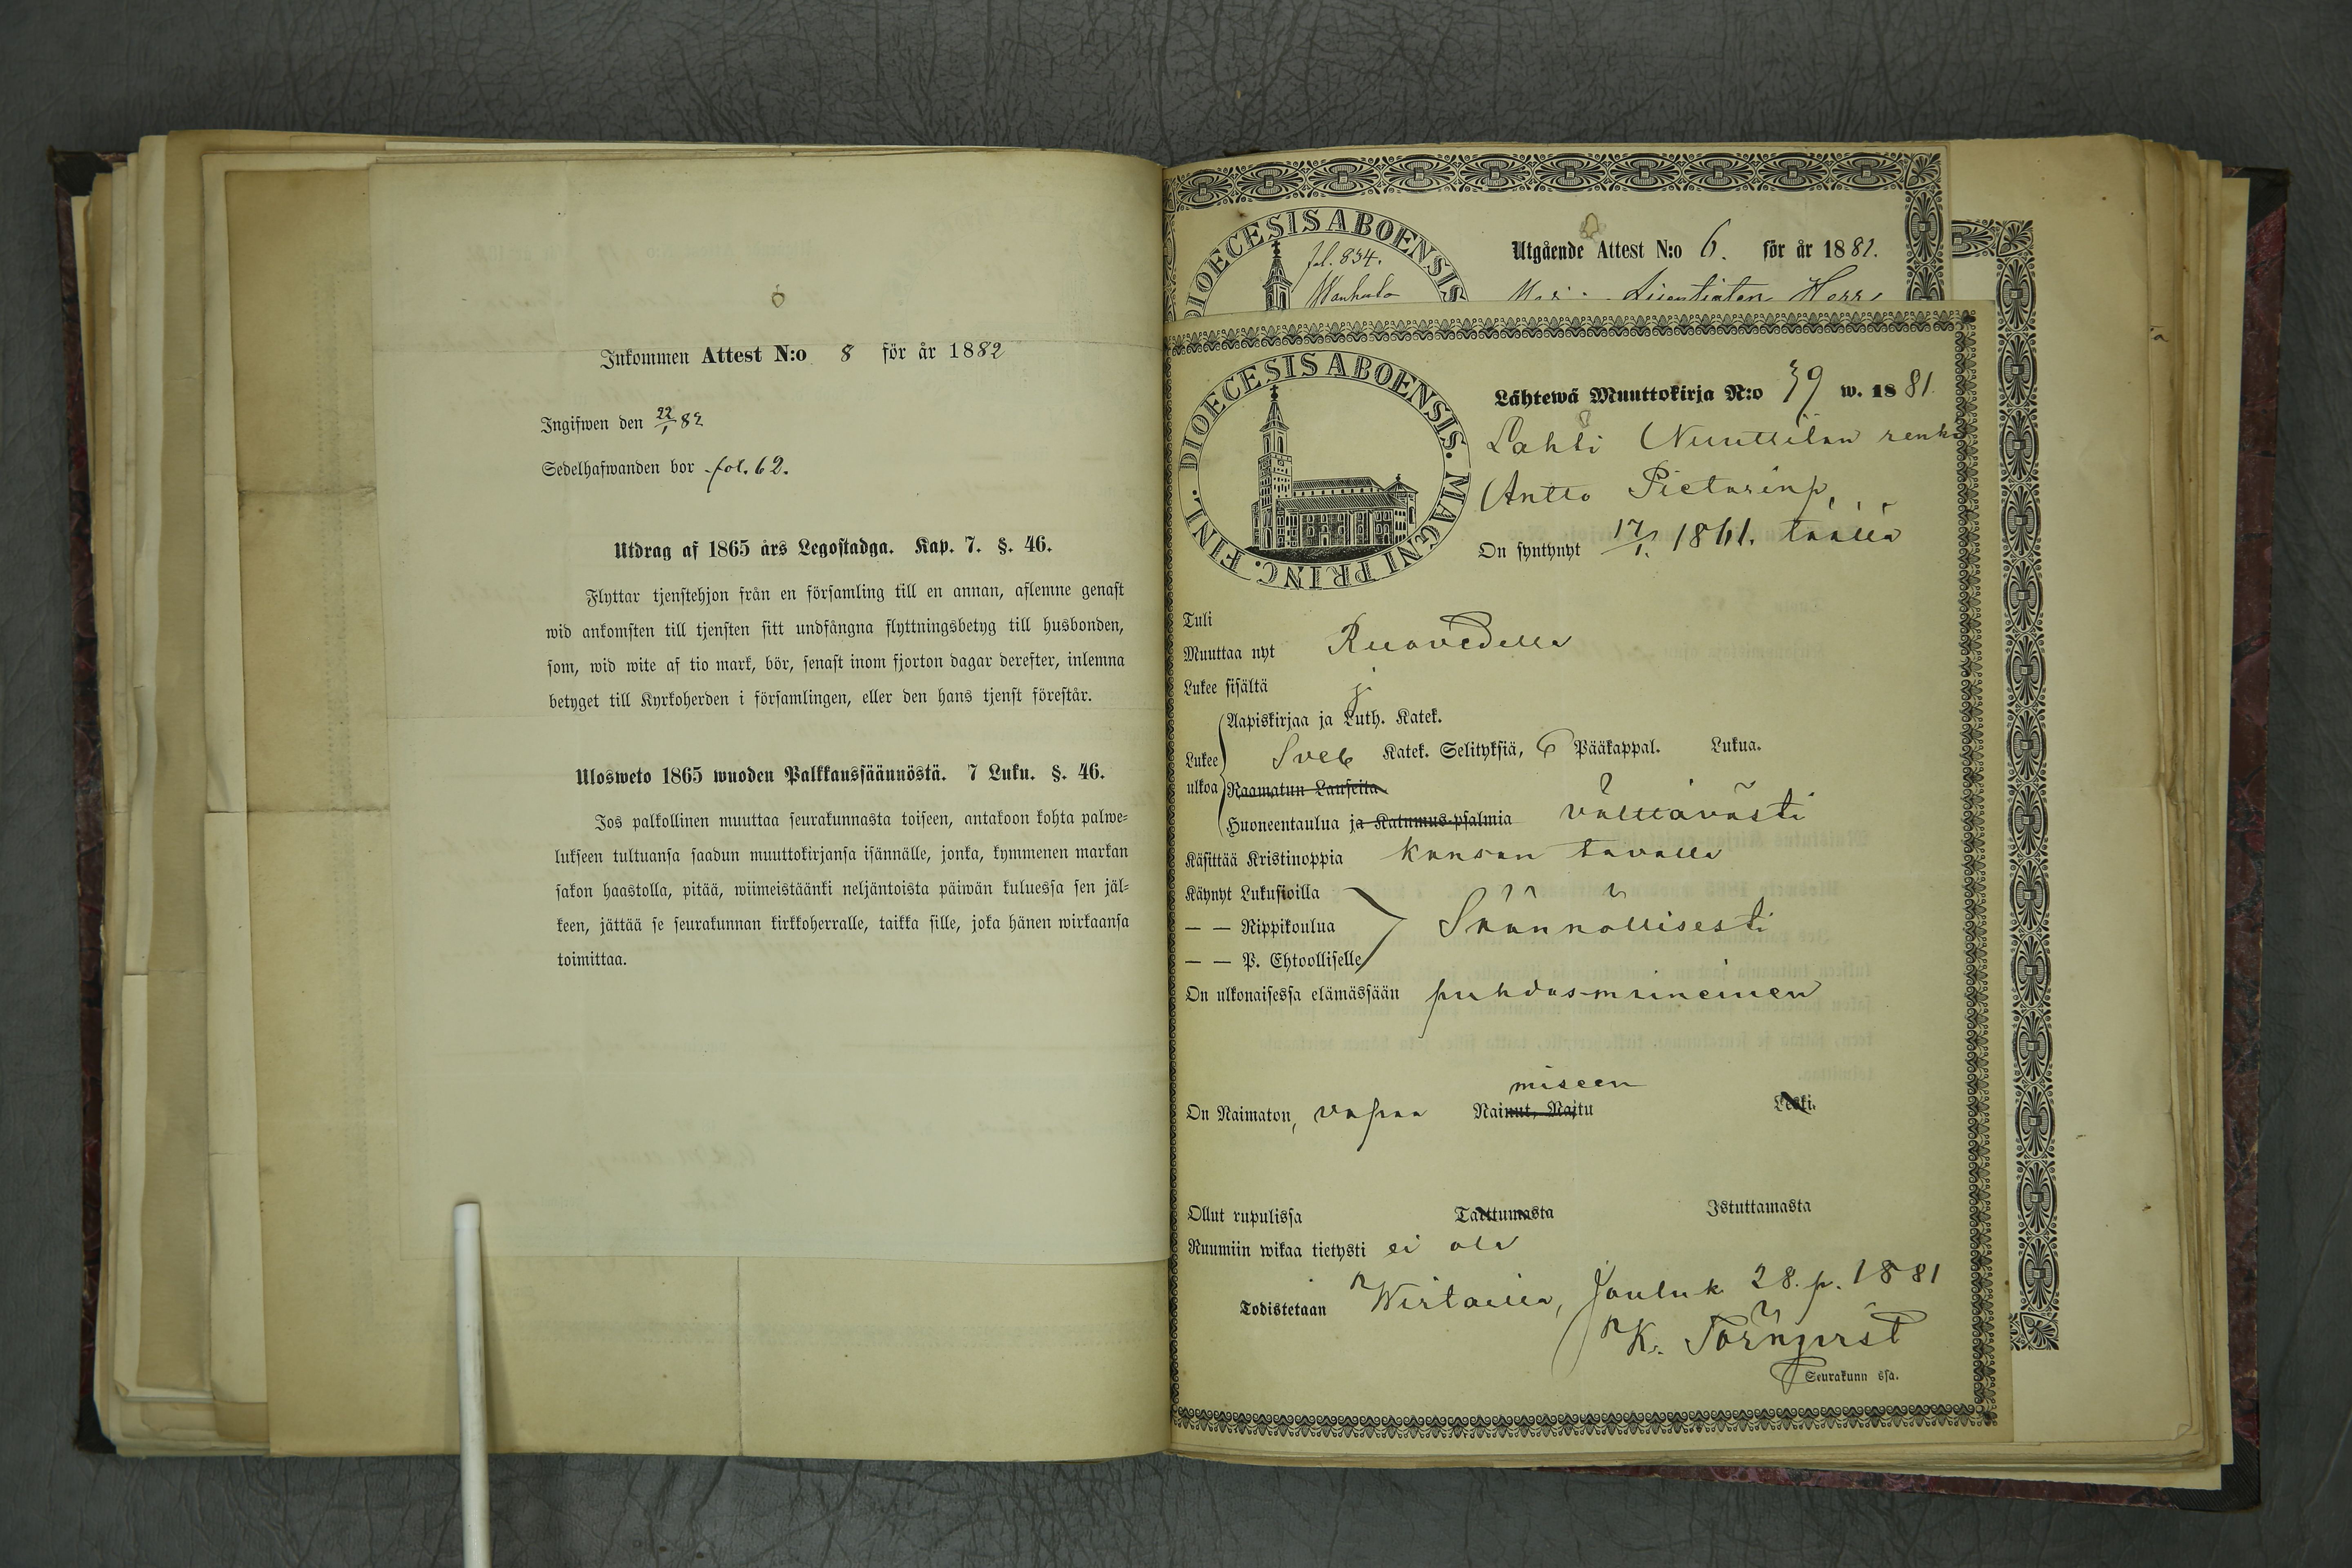 Inkommen Attest N:o 8 för år 1882
Ingifwen den 22/1 82
Sedelhafwanden bor fol. 62.
Utdrag af 1865 års Legostadga. Kap. 7. §. 46.
Flyttar tjenstehjon från en församling till en annan, aflemne genast
wid ankomsten till tjensten sitt undfångna flyttningsbetyg till husbonden,
som, wid wite af tio mark, bör, senast inom fjorton dagar derefter, inlemna
betyget till Kyrkoherden i församlingen, eller den hans tjenst förestår.
Ulosweto 1865 wuoden Palkkaussäännöstä. 7 Luku. §. 46.
Jos palkollinen muuttaa seurakunnasta toiseen, antakoon kohta palwe-
lukseen tultuansa saadun muuttokirjansa isännälle, jonka, kymmenen markan
sakon haastolla, pitää, wiimeistäänki neljäntoista päiwän kuluessa sen jäl-
keen, jättää se seurakunnan kirkkoherralle, taikka sille, joka hänen wirkaansa
toimittaa.
DIOECESIS ABOENSIS
fol. 834.
Wanhala
Utgående Attest N:o 6. för år 1882.
Lisentiaten Herr
DIOECESIS ABOENSIS. MAGNI PRINC. FINL.
Lähtewä Muuttokirja N:o 39 w. 1881
Lahti Nuuttilan renki
Antto Pietarinp.
On syntynyt 17/1 1861. täällä
Tuli
Muuttaa nyt Ruovedelle
Lukee sisältä j
Aapiskirjaa ja Luth. Katek.
Lukee ulkoa Sveb Katek. Selityksiä, 6 Pääkappal. Lukua.
Raamatun Lauseita
Huoneentaulua ja Katumus-psalmia välttävästi
Käsittää Kristinoppia kansan tavalla
Käynyt Lukusioilla
— — Rippikoulua Säännöllisesti
— — P. Ehtoolliselle
On ulkonaisessa elämässään puhdasmaineinen
miseen
On Naimaton, vapaa Nainut, Naitu Leski.
Ollut rupulissa Tarttumasta Istuttamasta
Ruumiin wikaa tietysti ei ole
Todistetaan Wirtailla, Jouluk 28. p. 1881
K. Törnqvist
Seurakunn ssa.